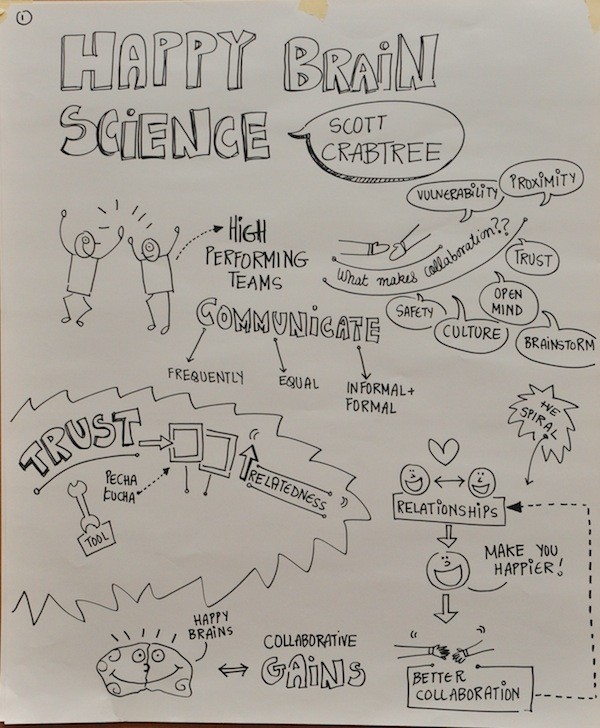 1
HAPPY BRAiN
SCiENCE
SCOTT
CRABTREE
VULNERABiLiTY
PROXiMiTY
HiGH
PERFORMiNG
TEAMS
What makes collaboration??
TRUST
OPEN
MiND
SAFETY
CULTURE
BRAiNSTORM
COMMUNiCATE
FREQUENTLY
EQUAL
INFORMAL+
FORMAL
+VE
SPiRAL
TRUST
PECHA
KUCHA
RELATEDNESS
TOOL
RELATiONSHiPS
MAKE YOU
HAPPiER!
HAPPY
BRAiNS
COLLABORATiVE
GAiNS
BETTER
COLLABORATiON